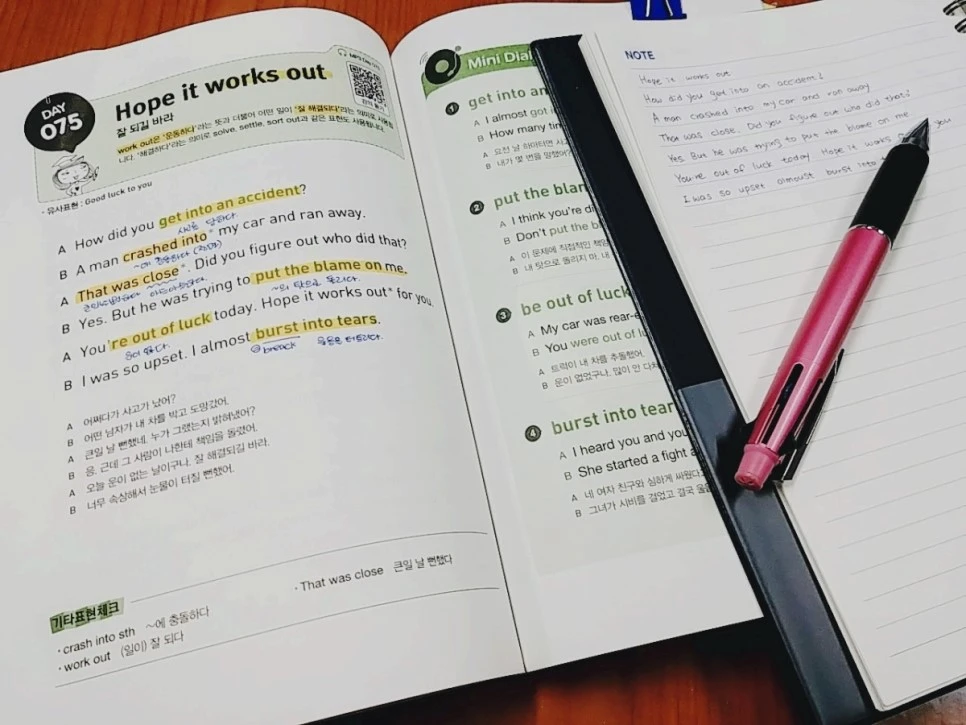 DAY
075
Hope it works out
잘 되길 바라
work out은 '운동하다'라는 뜻과 더불어 어떤 일이 '잘 해결되다'라는 의미로 사용됩
니다. '해결하다'라는 의미로 solve, settle, sort out과 같은 표현도 사용됩니다.
· 유사표현 : Good luck to you
A How did you get into an accident?
사고를 당하다.
B A man crashed into* my car and ran away.
A That was close*. Did you figure out who did that?
B Yes. But he was trying to put the blame on me.
~의 탓으로 돌리다.
A You're out of luck today. Hope it works out* for you.
운이 없다.
B I was so upset. I almost burst into tears.
break 울음을 터트리다.
A 어쩌다가 사고가 났어?
B 어떤 남자가 내 차를 박고 도망갔어.
A 큰일 날 뻔했네. 누가 그랬는지 밝혀냈어?
B 응. 근데 그 사람이 나한테 책임을 돌렸어.
A 오늘 운이 없는 날이구나. 잘 해결되길 바라.
B 너무 속상해서 눈물이 터질 뻔했어.
기타표현체크
· crash into sth ~에 충돌하다
· That was close 큰일 날 뻔했다
· work out (일이) 잘 되다
Mini Dial
1 get into an
A I almost got i
B How many tim
A 요런 날 하마터면 사고
B 내가 몇 번을 말했어?
2 put the blam
A I think you're di
B Don't put the b
A 이 문제에 직접적인 책임
B 내 탓으로 돌리지 마. 내
3 be out of luck
A My car was rear-e
B You were out of lu
A 트럭이 내 차를 추돌했어.
B 운이 없었구나. 많이 안 다쳐
4 burst into tear
A I heard you and you
B She started a fight a
A 네 여자 친구와 심하게 싸웠다고
B 그녀가 시비를 걸었고 결국 울음
NOTE
Hope it works out
How did you got into an accident?
A man crashed into my car and ran away
That was close. Did you figure out who did that?
Yes But he was trying to put the blame on me
You're out of luck today Hope it works you
I was so upset almoust burst into